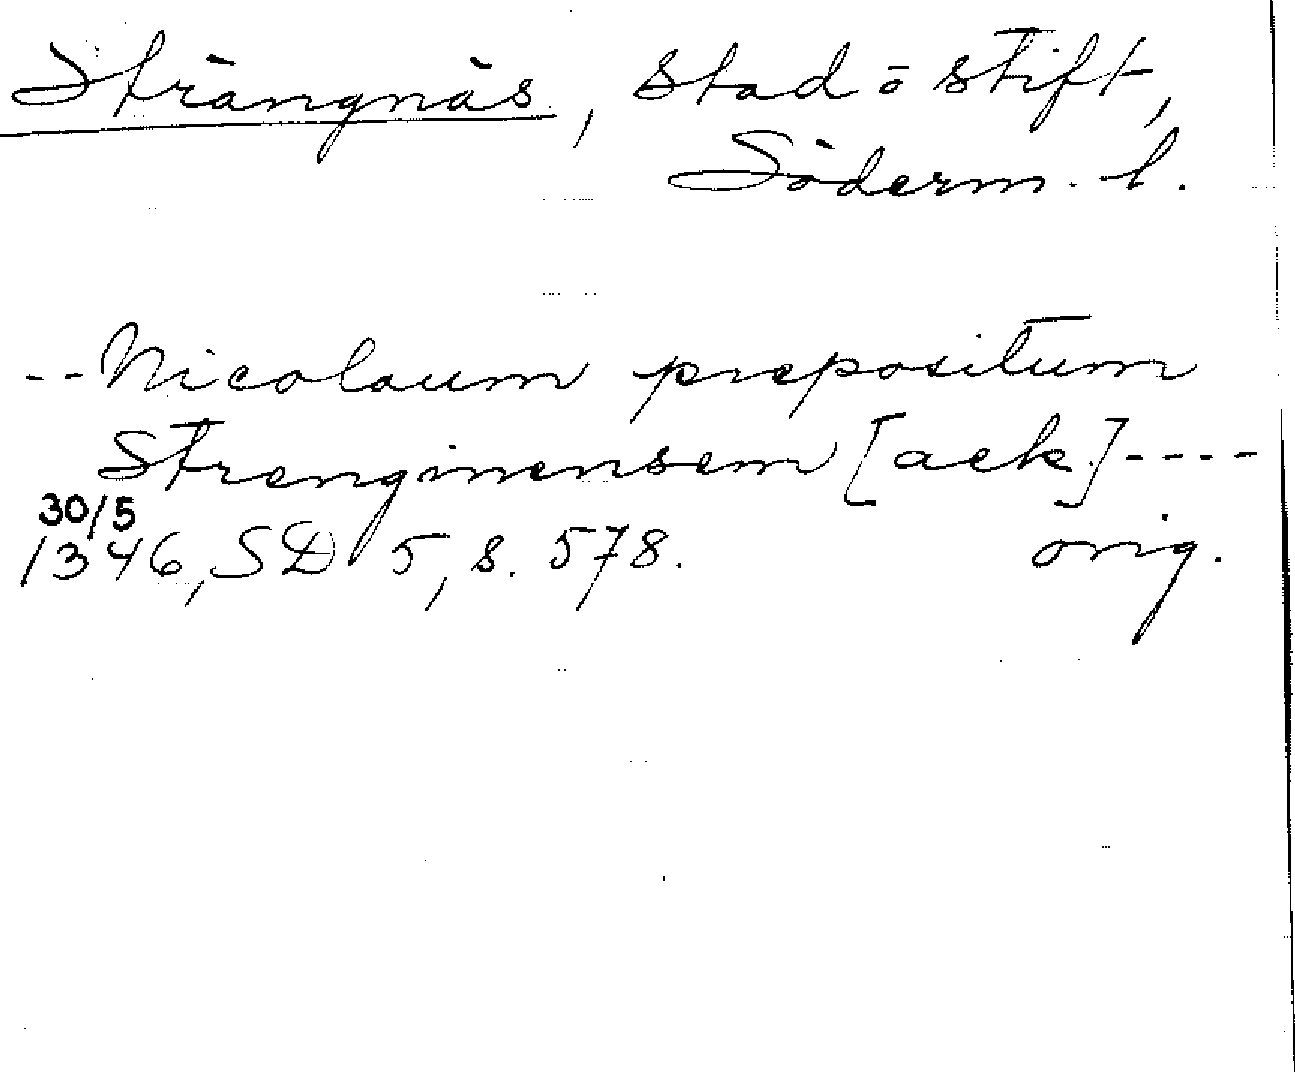 Strängnäs, stad o stift,
Söderm. l.
--Nicolaum prepositum
Strenginensem [ack.]----
30/5
1346, SD 5, s. 578. orig.